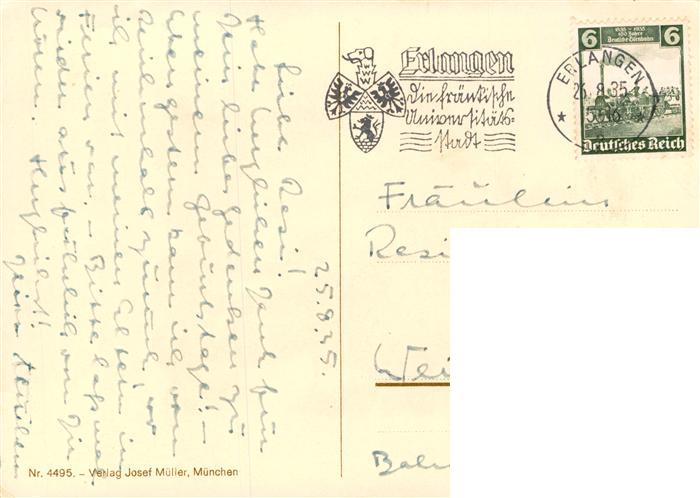 25.8.35.
Liebe Resi!
Habe herzlichen Dank für
Dein liebes Gedenken zu
meinem Geburtstage! –
Vorgestern kam ich von
zurück, wo
ich mit meinen Eltern in
Ferien war. – Bitte laß mal
wieder ausführlich von Dir
hören. Herzlichst!
Nr. 4495. – Verlag Josef Müller, München
Erlangen
Die fränkische
Universitäts-
stadt
ERLANGEN
26.8.35
6 1835-1935 6
100 Jahre
Deutsche Eisenbahn
Deutsches Reich
Fräulein
Resi